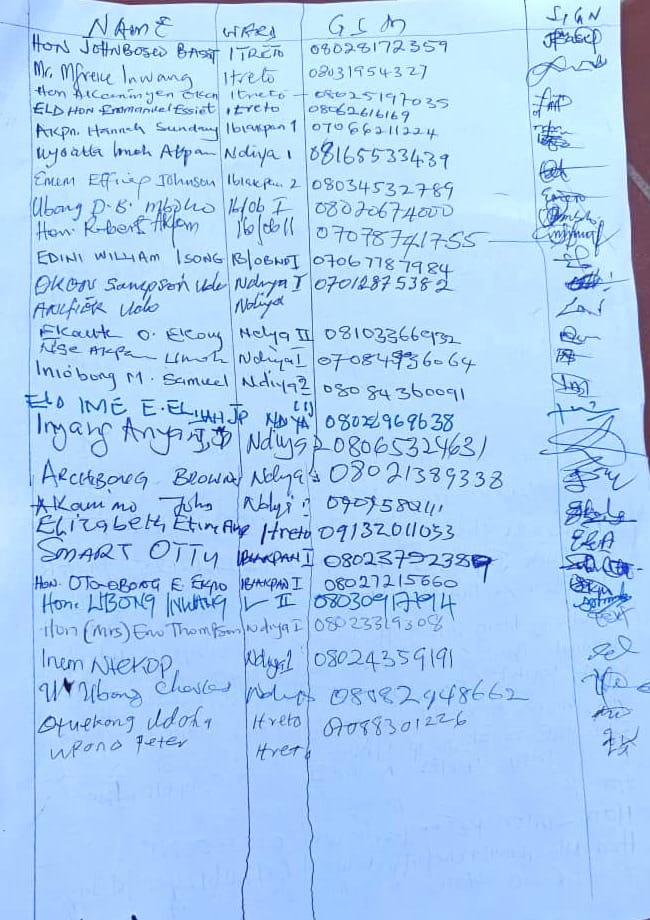 NAME WARD GSM SIGN
HON JOHNBOSCO BASSI ITRETO 08028172359
Mr. Mfreke Inwang Itreto 08031954327
Hon Akaninyen Itreto 08025197035
ELD HON Emmanuel Essiet Itreto 08062616169
Akpn. Hannah Sunday Ibiakpan 1 07066211224
Imoh Akpan Ndiya 1 08165533439
Emem Effiong Johnson Ibiakpan 2 08034532789
Ubong D.B. Mboho Ib/ob I 08020674000
Hon. Robert Akpan Ib/ob II 07078741755
EDINI WILLIAM ISONG IB/OBNO I 07067787984
OKON Sampson Udo Ndiya I 07012875382
Udo Ndiya
O. Ekong Ndiya II 08103366932
Nse Akpan Umoh Ndiya I 07084936064
Iniobong M. Samuel Ndiya 2 08084360091
ELD IME E. ELIJAH JP 08028969638
Inyang Ndiya 2 08065324631
ARCHIBONG BROWN Ndiya 08021389338
John
Elizabeth Etim Itreto 09132011053
SMART OTTU IBIAKPAN I 0802379238
HON. OTOBONG E. EKPO IBIAKPAN I 08027215660
Hon. UBONG INWANG II
Hon (Mrs) Eno Thompson Ndiya I 08023319308
Inem NTEKOP Ndiya 1 08024359191
Ubong Charles Ndiya 08082948662
Otuekong Udoha Itreto 07088301226
Peter Itreto